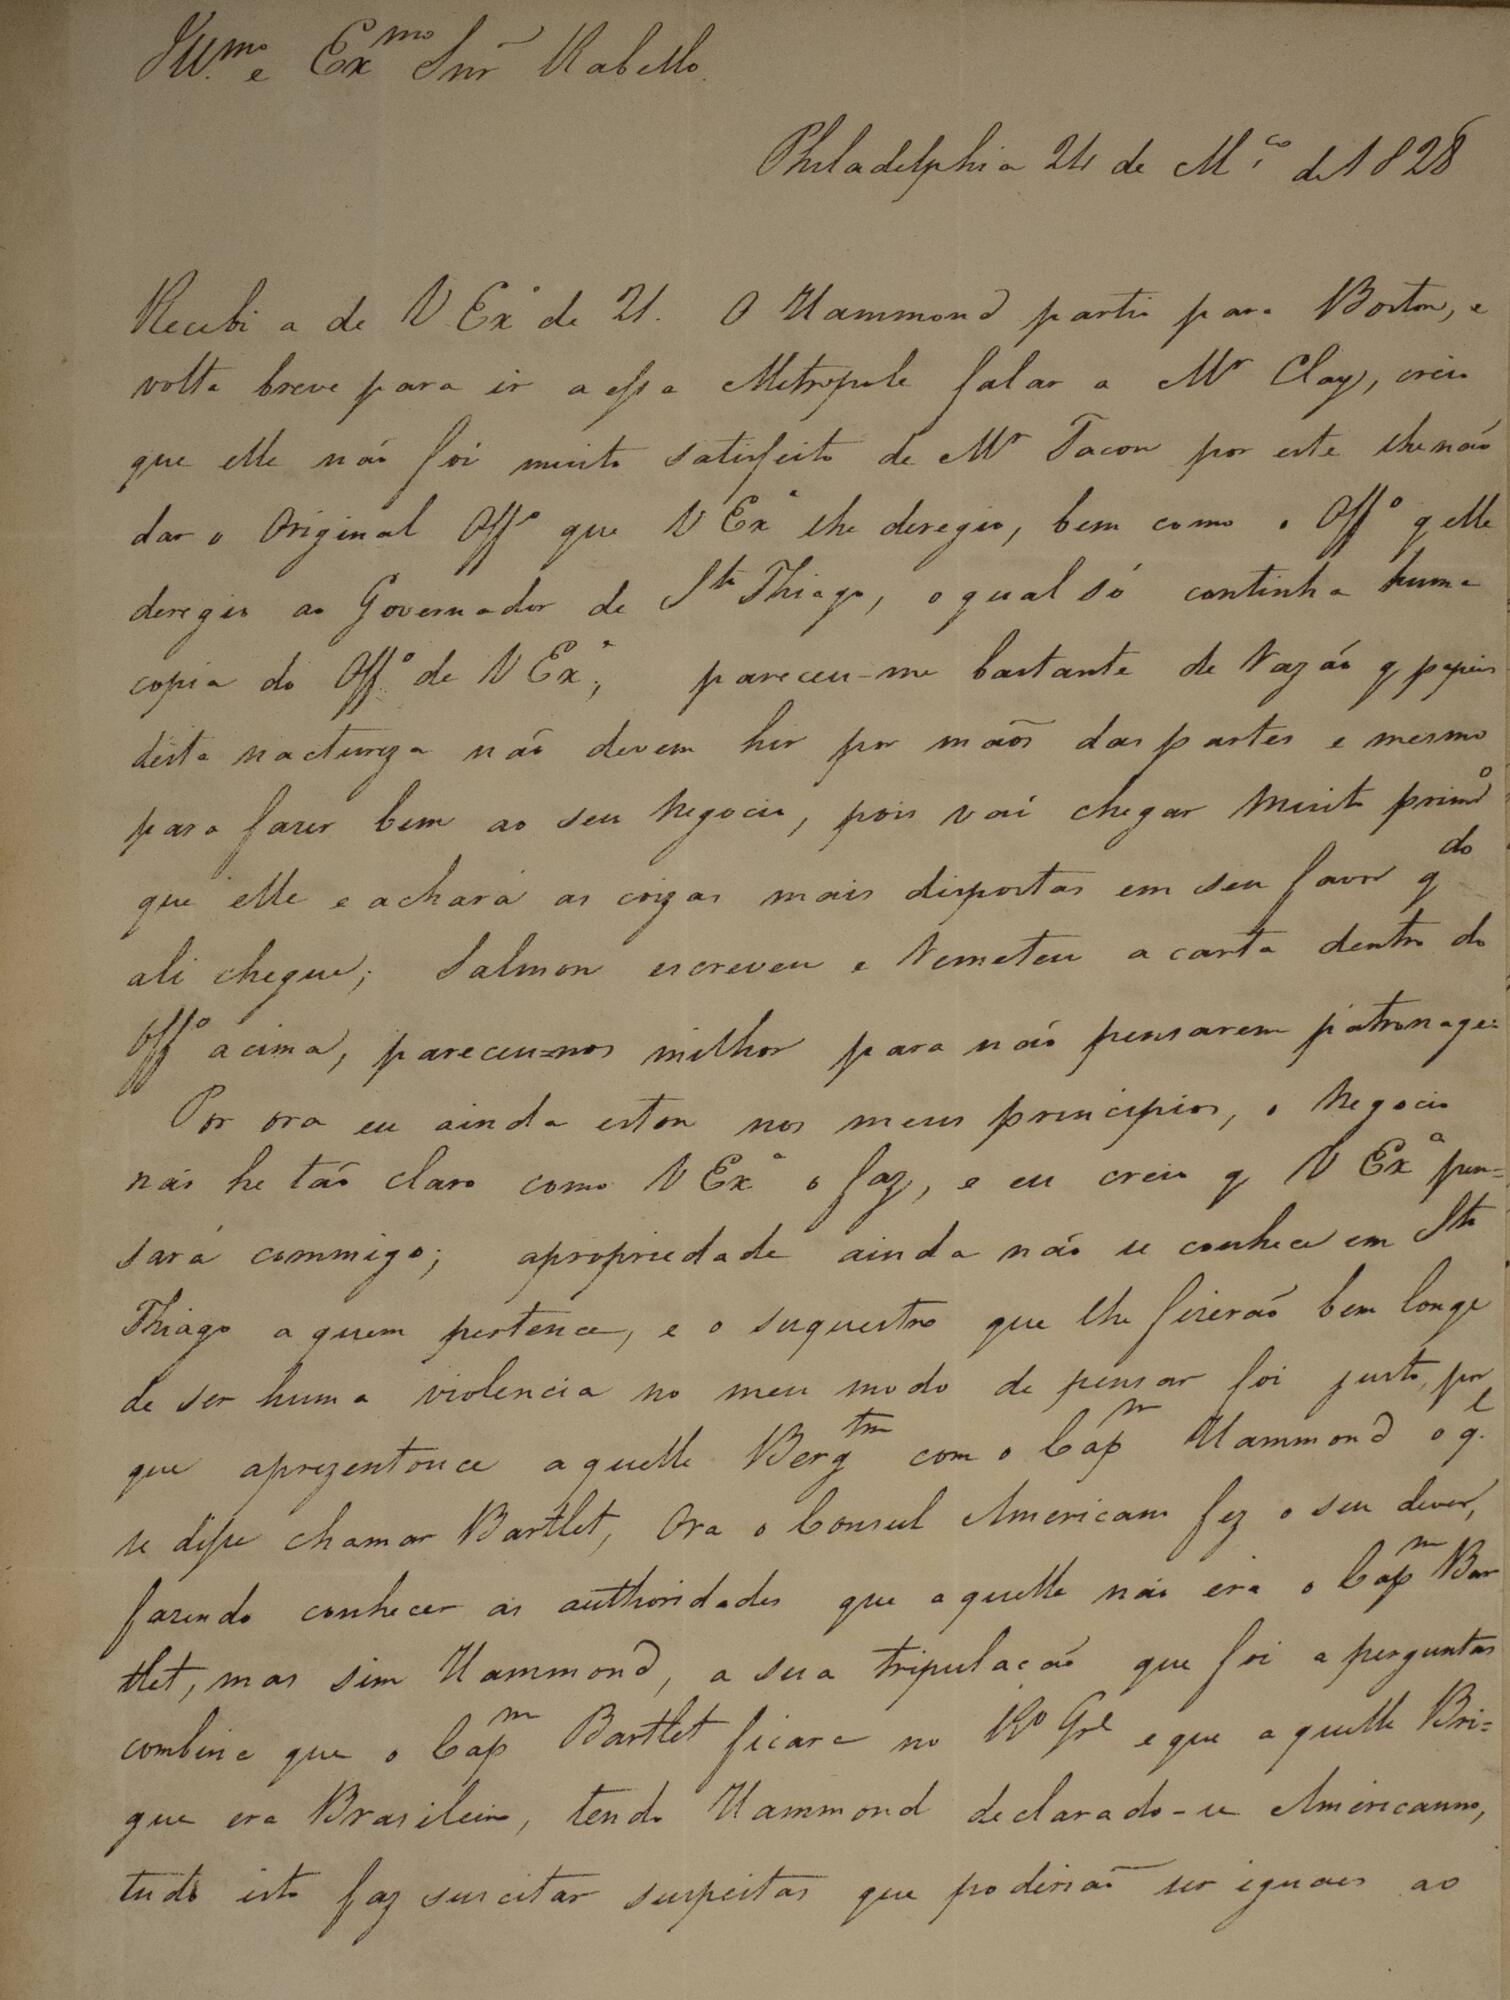 Ill.mo e Exmo Snr Rabello.
Philadelphia 24 de M.ço de 1828
Recebi a de V Exª de 21. O Hammond partio para Boston, e
volta breve para ir a essa Metropole falar a Mr Clay, creio
que elle não foi muito satisfeito de Mr Tacon por este lhe não
dar o Original Offº que V Exª lhe deregio, bem como o Offº q elle
deregio ao Governador de Sto Thiago, o qual só continha huma
copia do Offº de V Exª; pareceu-me bastante de razão q papeis
desta nactureza não devem hir por mãos das partes e mesmo
para fazer bem ao seu negocio, pois vai chegar muito primº
que elle e achará as coizas mais dispostas em seu favor qdo
ali chegue; Salmon escreveu e remeteu a carta dentro do
Offº acima, pareceu=nos milhor para não pensarem patronage:
Por ora eu ainda estou nos meus principios, o negocio
não he tão claro como V Exª o faz, e eu creio q V Exª pen=
sará commigo; apropriedade ainda não se conhece em Sto
Thiago a quem pertence, e o suquestro que lhe fizerão bem longe
de ser huma violencia no meu modo de pensar foi justo, por
que aprezentouce aquelle Bergtm com o Capm Hammond o q.l
se disse chamar Bartlet, Ora o Consul Americano fez o seu dever,
fazendo conhecer as authoridades que aquelle não era o Capm Bar
tlet, mas sim Hammond, a sua tripulação que foi a perguntas
combina que o Capm Bartlet ficara no Rº Grl e que aquelle Bri=
que era Brasileiro, tendo Hammond declarado-se Americanno,
tudo isto faz suscitar suspeitas que poderião ser iguaes ao